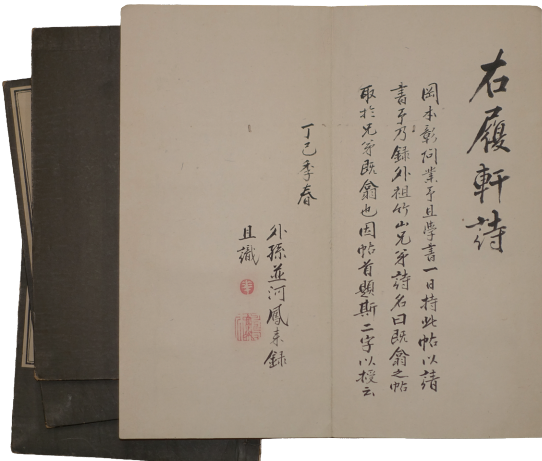 右履軒詩
岡本彰同業予且學書一日持此帖以請
書予乃録外祖竹山兄弟詩名曰既翕之帖
取於兄弟既翕也因帖首題斯二字以授云
丁巳季春
外孫並河鳳来録
且識